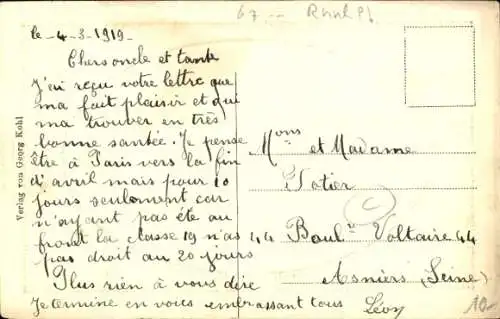 67 --
le -4-3-1919-
Chers oncle et tante
J'ai reçu votre lettre que
ma fait plaisir et qui
ma trouver en très
bonne santée. Je pense
être à Paris vers la fin
d'avril mais pour 10
jours seulement car
n'ayant pas été au
front la classe 19 n'as
pas droit au 20 jours
Plus rien à vous dire
Je termine en vous embrassant tous
Léon
Mons et Madame
44 Boulv Voltaire 44
Asnièrs (Seine)
Verlag von Georg Kohl
10-